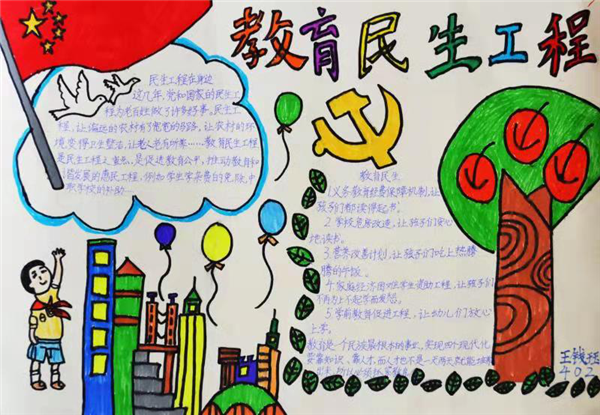 教育民生工程
民生工程在身边
这几年,党和国家的民生工
程为老百姓做了许多好事,民生工
程,让偏远的农村有了宽宽的马路,让农村的环
境变得卫生整洁,让老人老有所乐……教育民生工程
是民生工程之重点,是促进教育公平,推动教育和
谐发展的惠民工程,例如学生学杂费的免除,中
职学校的补助……
教育民生
1.义务教育经费保障机制,让
孩子们都读得起书。
2.学校危房改造,让孩子们安心
地读书。
3.营养改善计划,让孩子们吃上热腾
腾的午饭。
4.家庭经济困难学生资助工程,让孩子们
不再为上不起学而发愁。
5.学前教育促进工程,让幼儿们放心
上学。
教育是一个民族最根本的事业,实现四个现代化
要靠知识、靠人才,而人才也不是一天两天就能
王
402